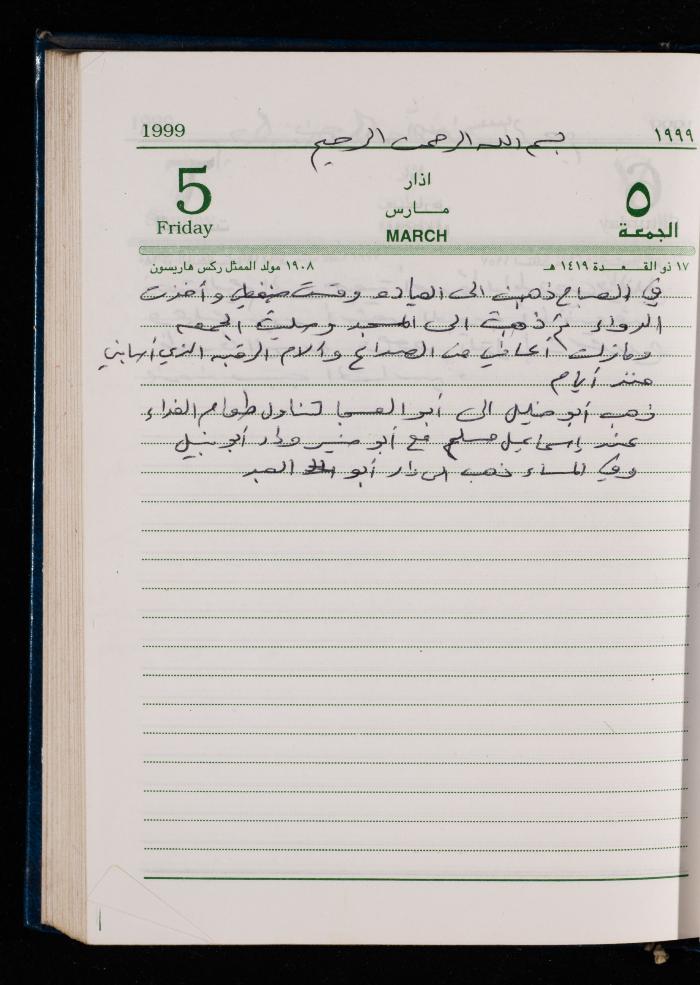 1999 بسم الله الرحمن الرحيم ١٩٩٩
5 اذار ٥
مـــارس
Friday MARCH الجمعة
١٩٠٨ مولد الممثل ركس هاريسون ١٧ ذو القـــعـــدة ١٤١٩ هـ
في الصباح ذهبت الى العياده وقست ضغطي وأخذت
الدواء ثم ذهبت الى المسجد وصليت الجمعه
ومازلت أعاني من الصداع وآلام الرقبه الذي أصابني
منذ أيام
ذهب أبو خليل الى أبو العسجا لتناول طعام الغداء
عند إسماعيل مسلم مع أبو منير ودار أبو نبيل
وفي المساء ذهب الى دار أبو العبد